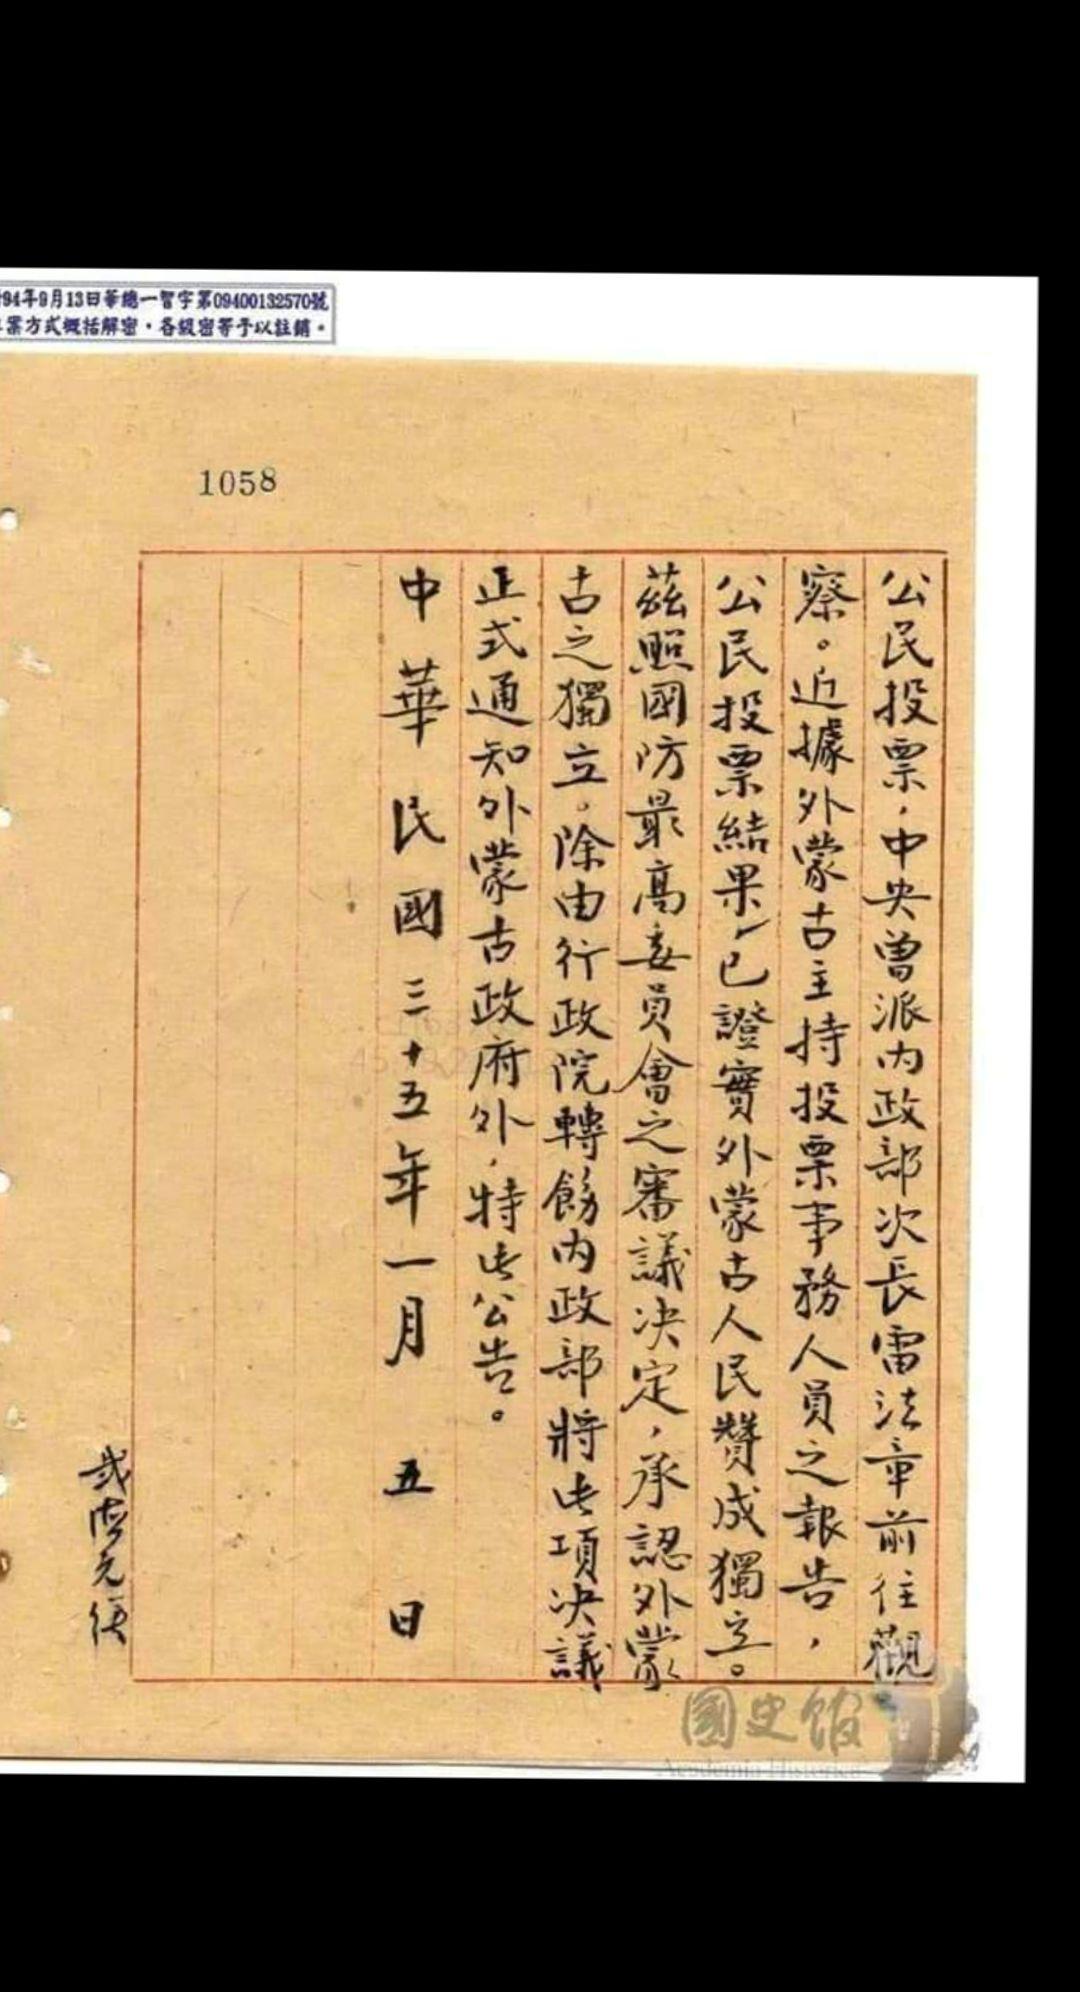 94年9月13日華總一智字第09400132570號
案方式概括解密，各級密等予以註銷。
1058
公民投票，中央曾派內政部次長雷法章前往觀
察。近據外蒙古主持投票事務人員之報告，
公民投票結果，已證實外蒙古人民贊成獨立。
茲照國防最高委員會之審議決定，承認外蒙
古之獨立。除由行政院轉飭內政部將此項決議
正式通知外蒙古政府外，特此公告。
中華民國三十五年一月 五 日
國史館
Academia Historica